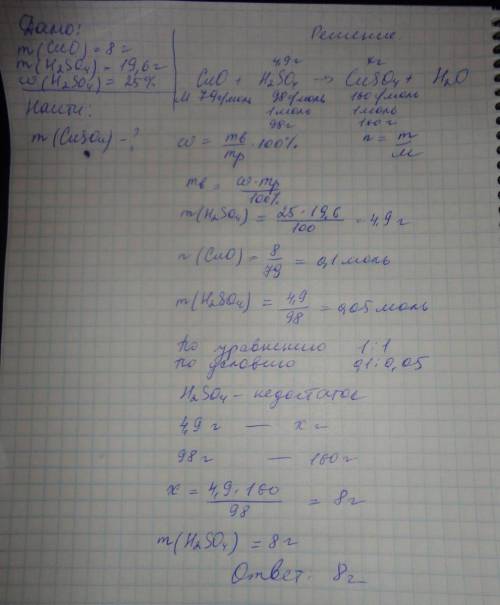 Дано:
m(CuO) = 8 г
m(H₂SO₄) = 19,6 г
ω(H₂SO₄) = 25%
Найти:
m(CuSO₄) - ?
Решение
4,9 г x г
CuO + H₂SO₄ → CuSO₄ + H₂O
M 79 г/моль 98 г/моль 160 г/моль
1 моль 1 моль
98 г 160 г
ω = mв/mр · 100% n = m/M
mв = ω · mр/100%
m(H₂SO₄) = 25 · 19,6/100 = 4,9 г
n(CuO) = 8/79 = 0,1 моль
m(H₂SO₄) = 4,9/98 = 0,05 моль
По уравнению 1:1
По условию 0,1:0,05
H₂SO₄ - недостаток
4,9 г — x г
98 г — 160 г
x = 4,9 · 160/98 = 8 г
m(H₂SO₄) = 8 г
Ответ: 8 г